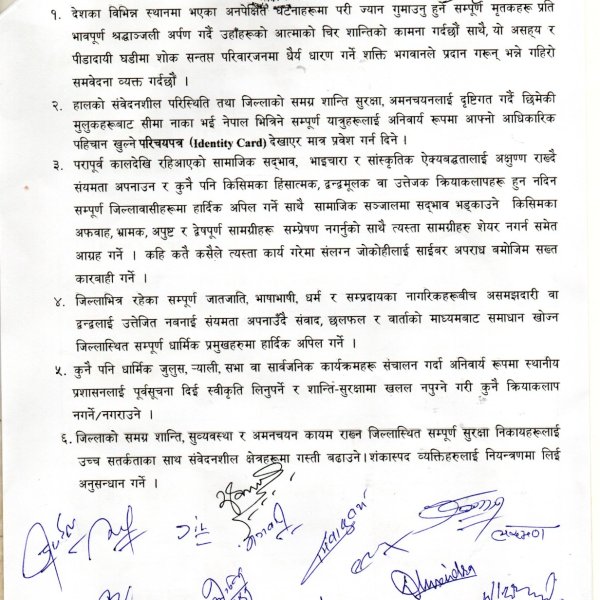 १. देशका विभिन्न स्थानमा भएका अनपेक्षित घटनाहरूमा परी ज्यान गुमाउनु हुने सम्पूर्ण मृतकहरू प्रति
भावपूर्ण श्रद्धाञ्जली अर्पण गर्दै उहाँहरूको आत्माको चिर शान्तिको कामना गर्दछौं साथै, यो असह्य र
पीडादायी घडीमा शोक सन्तप्त परिवारजनमा धैर्य धारण गर्ने शक्ति भगवानले प्रदान गरून् भन्ने गहिरो
समवेदना व्यक्त गर्दछौं ।
२. हालको संवेदनशील परिस्थिति तथा जिल्लाको समग्र शान्ति सुरक्षा, अमनचयनलाई दृष्टिगत गर्दै छिमेकी
मुलुकहरूबाट सीमा नाका भई नेपाल भित्रिने सम्पूर्ण यात्रुहरूलाई अनिवार्य रूपमा आफ्नो आधिकारिक
पहिचान खुल्ने परिचयपत्र (Identity Card) देखाएर मात्र प्रवेश गर्न दिने ।
३. परापूर्व कालदेखि रहिआएको सामाजिक सद्भाव, भाइचारा र सांस्कृतिक ऐक्यवद्धतालाई अक्षुण्ण राख्दै
संयमता अपनाउन र कुनै पनि किसिमका हिंसात्मक, द्वन्द्वमूलक वा उत्तेजक क्रियाकलापहरू हुन नदिन
सम्पूर्ण जिल्लावासीहरूमा हार्दिक अपिल गर्ने साथै सामाजिक सञ्जालमा सद्भाव भड्काउने किसिमका
अफवाह, भ्रामक, अपुष्ट र द्वेषपूर्ण सामग्रीहरू सम्प्रेषण नगर्नुको साथै त्यस्ता सामग्रीहरु शेयर नगर्न समेत
आग्रह गर्ने । कहि कतै कसैले त्यस्ता कार्य गरेमा संलग्न जोकोहीलाई साईवर अपराध बमोजिम सख्त
कारबाही गर्ने ।
४. जिल्लाभित्र रहेका सम्पूर्ण जातजाति, भाषाभाषी, धर्म र सम्प्रदायका नागरिकहरूबीच असमझदारी वा
द्वन्द्वलाई उत्तेजित नबनाई संयमता अपनाउँदै संवाद, छलफल र वार्ताको माध्यमबाट समाधान खोज्न
जिल्लास्थित सम्पूर्ण धार्मिक प्रमुखहरुमा हार्दिक अपिल गर्ने ।
५. कुनै पनि धार्मिक जुलुस, ऱ्याली, सभा वा सार्वजनिक कार्यक्रमहरू संचालन गर्दा अनिवार्य रूपमा स्थानीय
प्रशासनलाई पूर्वसूचना दिई स्वीकृति लिनुपर्ने र शान्ति-सुरक्षामा खलल नपुग्ने गरी कुनै क्रियाकलाप
नगर्ने/नगराउने ।
६. जिल्लाको समग्र शान्ति, सुव्यवस्था र अमनचयन कायम राख्न जिल्लास्थित सम्पूर्ण सुरक्षा निकायहरूलाई
उच्च सतर्कताका साथ संवेदनशील क्षेत्रहरूमा गस्ती बढाउने । शंकास्पद व्यक्तिहरुलाई नियन्त्रणमा लिई
अनुसन्धान गर्ने ।
Dhirendra